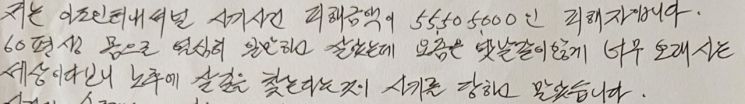 저는 아도인터내셔널 사기사건 피해금액이 55,505,000인 피해자입니다.
60평생 몸으로 열심히 일만하고 살았는데 요즘은 옛날같이않게 너무 오래 사는
세상이다보니 노후에 살길을 찾는다는것이 사기를 당하고 말았습니다.